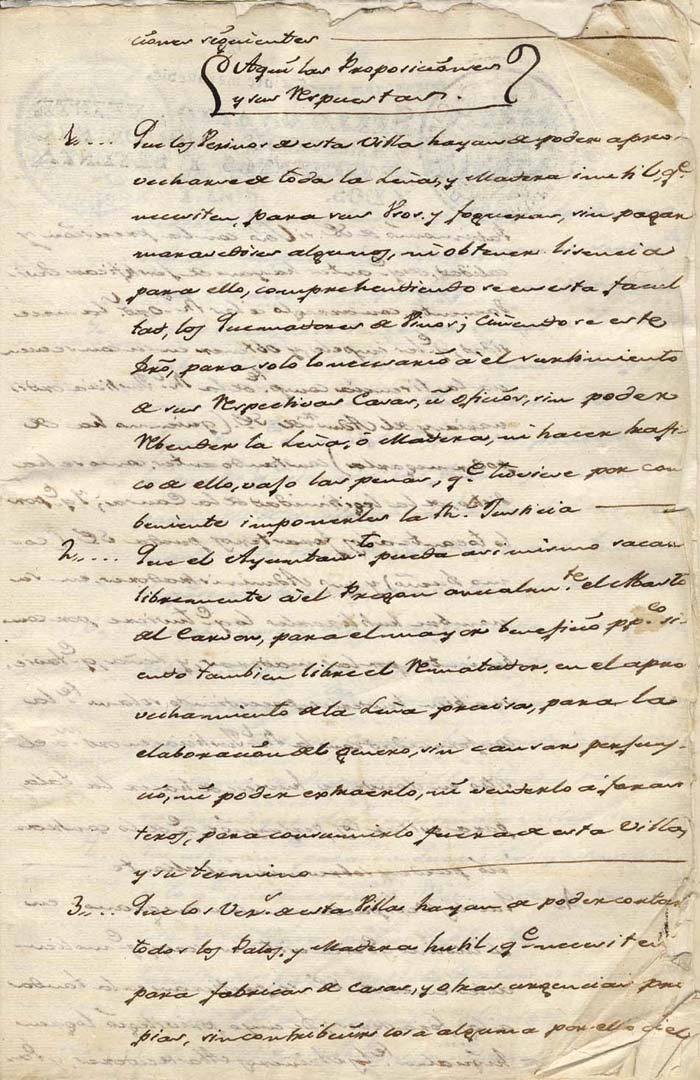 ciones siguientes
Aquí las Proposiciones
y sus Respuestas.
1,,... Que los Vecinos de esta Villa hayan de poder apro-
vecharse de toda la Leña, y Madera inutil, q.e
necesiten, para sus Usos, y fogueras, sin pagar
maravedises algunos, ni obtener licencia
para ello, comprehendiendose en esta facul
tad, los Quemadores de Pinos; ciñendose este
dro, para solo lo necesario a el surtimiento
de sus Respectivas Casas, ú oficios, sin poder
Rebender la Leña, ó Madera, ni hacer trafi
co de ello, vajo las penas, q.e tubiese por com
beniente imponerles la R.l Justicia
2,,.... Que el Ayuntam.to pueda asimismo sacar
libremente á el Pregon anualm.te el Abasto
del Carvon, para el mayor beneficio pp.co si-
endo tambien libre el Rematador, en el apro
vechamiento de la Leña precisa, para la
elaboración del genero, sin causar perjuy-
cio, ni poder extraerlo, ni venderlo á foras
teros, para consumirlo fuera de esta Villa,
y su termino
3,,... Que los Vec.s de esta Villa hayan de poder cortar
todos los Palos, y Madera hutil, q.e necesiten
para fabricas de casas, y otras urgencias pro
pias, sin contribuir cosa alguna por ello; i el